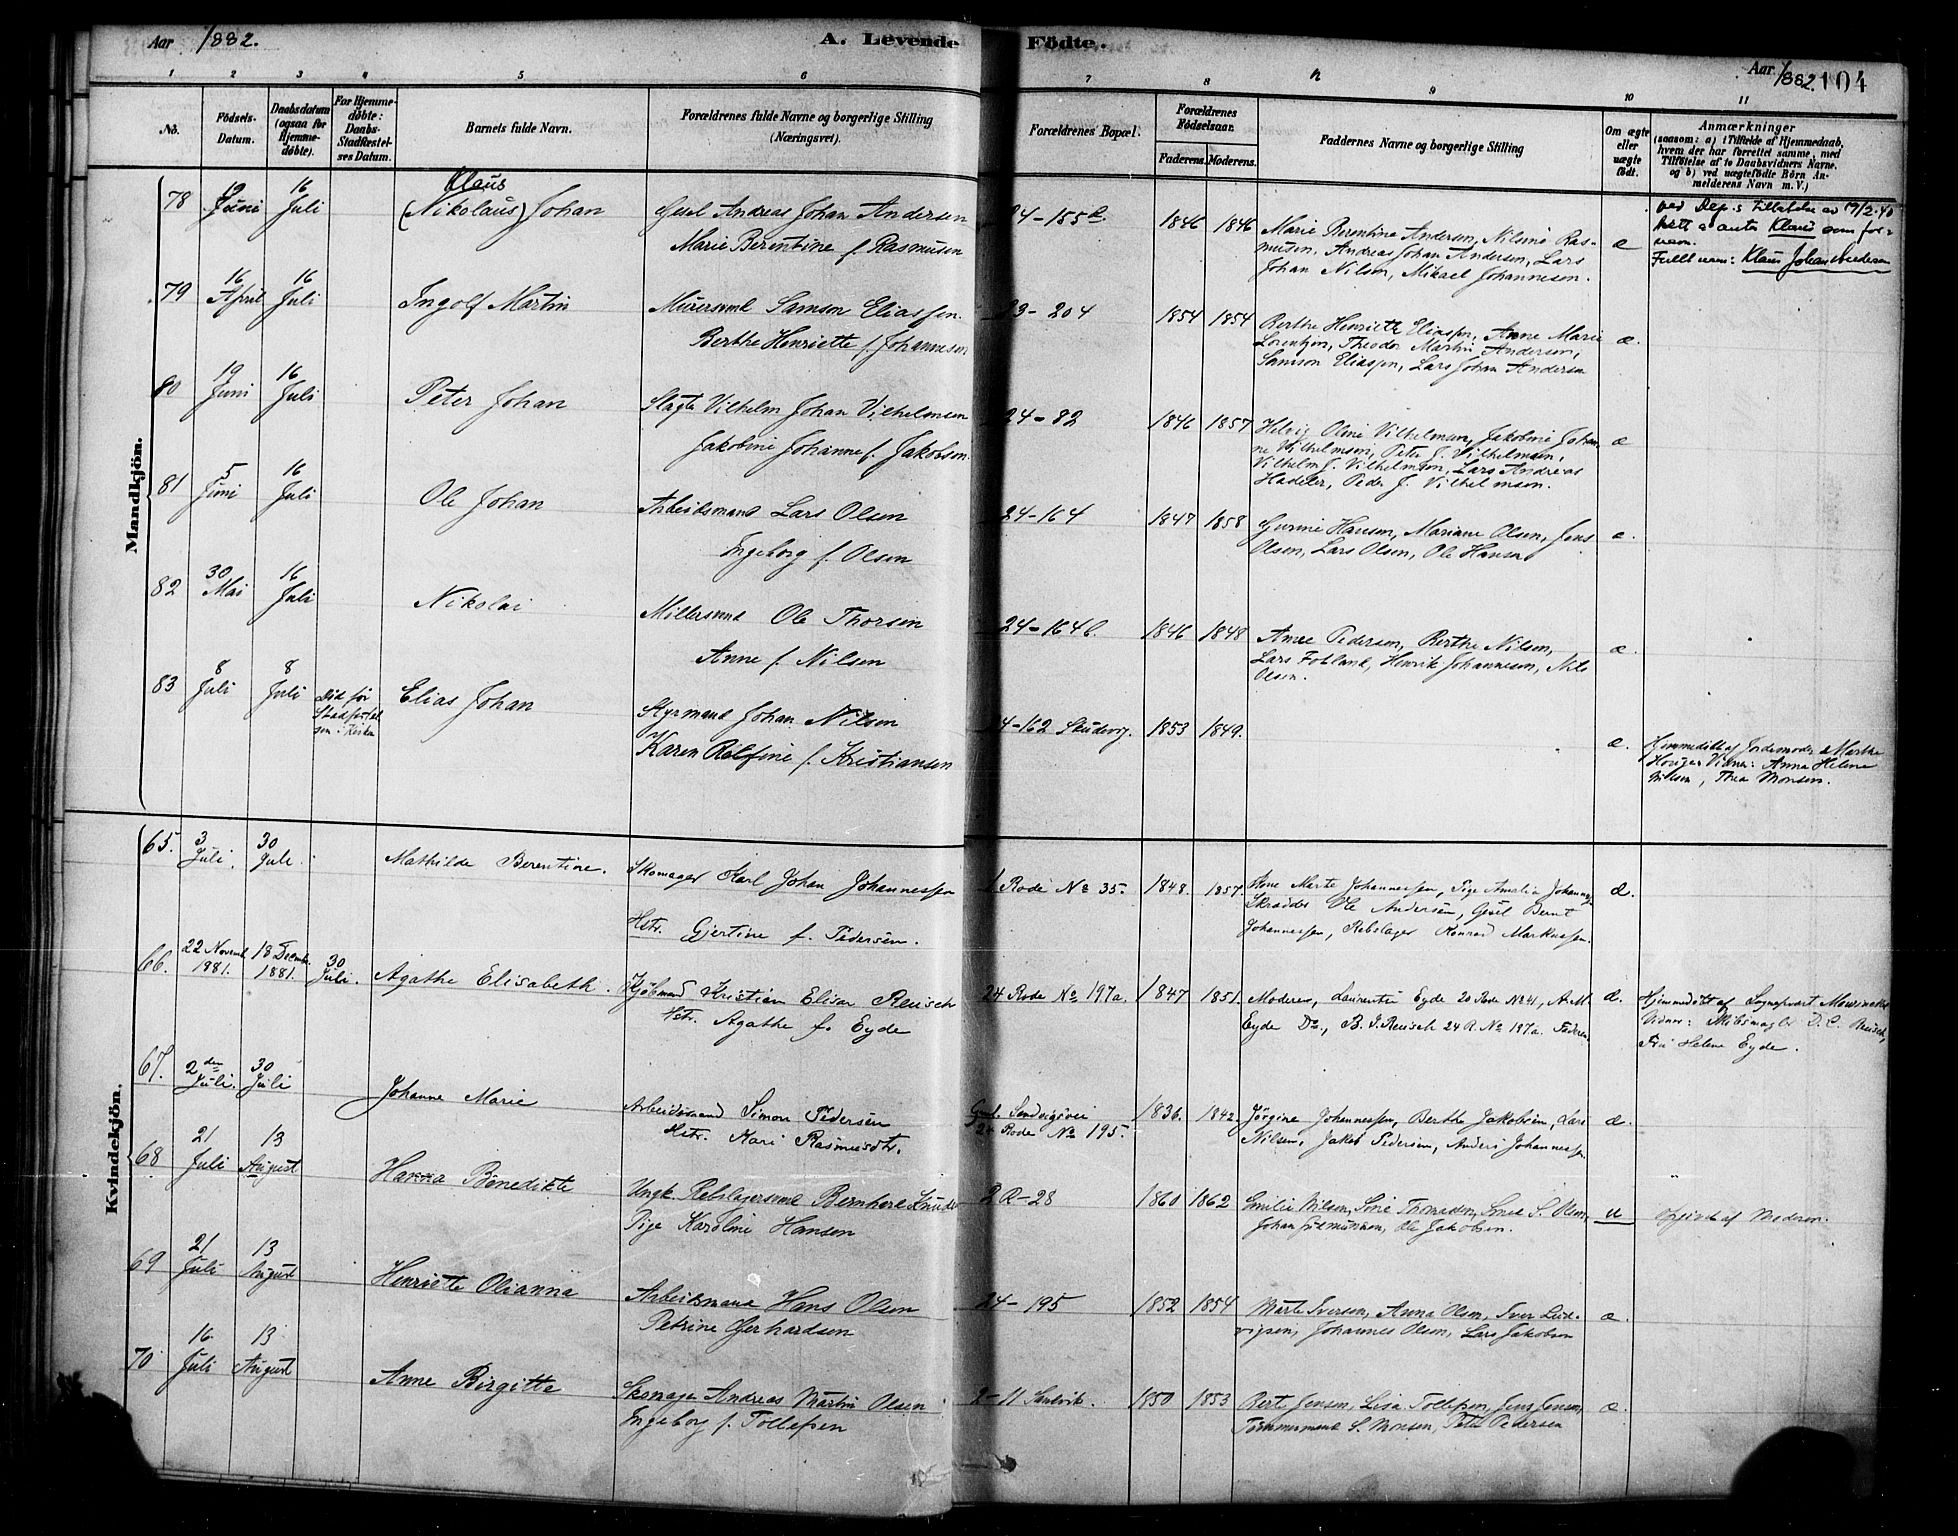 Aar 1882.
A. Levende Födte.
Aar 1882. 104
1 2 3 4 5 6 7 8 9 10 11
No.
Födsels-Datum.
Daabsdatum (ogsaa for Hjemme-døbte).
For Hjemme-døbte: Daabs-Stadfæstel-ses Datum.
Barnets fulde Navn.
Forældrenes fulde Navne og borgerlige Stilling (Næringsvei).
Forældrenes Bopæl.
Forældrenes Födselsaar.
Faderens. Moderens.
Faddernes Navne og borgerlige Stilling
Om ægte eller uægte født.
Anmærkninger
(saasom: a) i Tilfælde af Hjemmedaab, hvem der har forrettet samme, med Tilføielse af to Daabsvidners Navne, og b) ved uægtefödte Börn An-melderens Navn m. V.)
Mandkjön.
78 Juni 16 Juli Klaus (Nikolaus) Johan
Gesel Andreas Johan Andersen
Marie Berentine f. Rasmusen
24-155 1846 1846
Marie Berentine Andersen, Nilsine Ras-
musen, Andreas Johan Andersen, Lars
Johan Nilsen, Mikael Johannesen.
æ
ved Dep.s tillatelse av 19/2.40
rett å anta Klaus som for-
navn.
Fullt navn: Klaus Johan Andersen
79 16 April 16 Juli Ingolf Martin
Murersvend Samson Eliassen
Berthe Henriette f. Johannesen
23-204 1854 1854
Berthe Henriette Eliassen, Anne Marie
Lorentzen, Theodor Martin Andersen,
Samson Eliassen, Lars Johan Andersen
æ.
80 19 Juni 16 Juli Peter Johan
Slagter Vilhelm Johan Vilhelmsen
Jakobine Johanne f. Jakobsen
24-82 1846 1857
Helvig Oline Vilhelmsen, Jakobine Johan-
ne Vilhelmsen, Peter J. Vilhelmsen,
Vilhelm J. Vilhelmsen, Lars Andreas
Hadeler, Peder J. Vilhelmsen.
æ
81 5 Juni 16 Juli Ole Johan
Arbeidsmand Lars Olsen
Ingeborg f. Olsen
24-164 1847 1858
Gurine Hansen, Mariane Olsen, Jens
Olsen, Lars Olsen, Ole Hansen
æ.
82 30 Mai 16 Juli Nikolai
Møllersvend Ole Thorsen
Anne f. Nilsen
24-164b. 1846 1848
Anne Pedersen, Berthe Nilsen,
Lars Fobland, Henrik Johannesen, Nils
Olsen.
æ.
83 8 Juli 8 Juli Død før
Stadfæstel-
sen i Kirken
Elias Johan
Styrmand Johan Nilsen
Karen Rolfine f. Kristiansen
24-162 Skudevig. 1853 1849.
æ.
Hjemmedøbt af Jordemoder Marthe
Vidner: Anna Helene
Nilsen, Thea Monsen.
Kvindekjön.
65. 3 Juli. 30 Juli Mathilde Berentine.
Skomager Karl Johan Johannessen
Hstr. Gjertine f. Pedersen.
1 Rode No 35. 1848. 1857.
Ane Marte Johannessen, Pige Amalia Johannes.
Skrædder Ole Andersen, Gesel Bernt
Johannessen, Rebslager Konrad Markussen.
æ.
66. 22 Novemb. 1881. 18 Decemb. 1881. 30 Juli. Agathe Elisabeth.
Kjøbmand Kristian Elisar Reusch
Hstr. Agathe f. Eyde
24 Rode No 197a. 1847 1851.
Moderen, Laurentse Eyde 20 Rode No 41, A. M.
Eyde Do., B. J. Reusch 24 R. No 197a. Faderen
æ.
Hjemmedøbt af Sogneprest
Vidner: D. C. Reusch,
Fru Helene Eyde.
67. 2den Juli. 30 Juli Johanne Marie
Arbeidsmand Simon Pedersen
Hstr. Kari Rasmusdtr.
Sandvigsvei
24 Rode No 195. 1836. 1842.
Jørgine Johannessen, Berthe Jakobsen, Lars
Nilsen, Jakob Pedersen, Anders Johannessen
æ.
68 21 Juli 13 August Hanna Benedikte
Ungk. Rebslagersvend Bernhard Knuds
Pige Karoline Hansen
2 R-28 1860 1862
Emilie Nilsen, Sine Thomassen, S. Olsen,
Johan Gudmundsen, Ole Jakobsen.
u
Opgivet af Moderen.
69 21 Juli 13 August Henriette Olianna
Arbeidsmand Hans Olsen
Petrine Gerhardsen
24-195 1852 1854
Marte Iversen, Anna Olsen, Iver Lud-
vigsen, Johannes Olsen, Lars Jakobsen
æ.
70 16. Juli 13 August Anne Birgitte
Skomager Andreas Martin Olsen
Ingeborg f. Tollefsen
2-11 Sandvik. 1850 1853
Bert Jensen, Lisa Tollefsen, Jens Jensen,
Tømmermand S. Monsen, Peter Pedersen
æ.